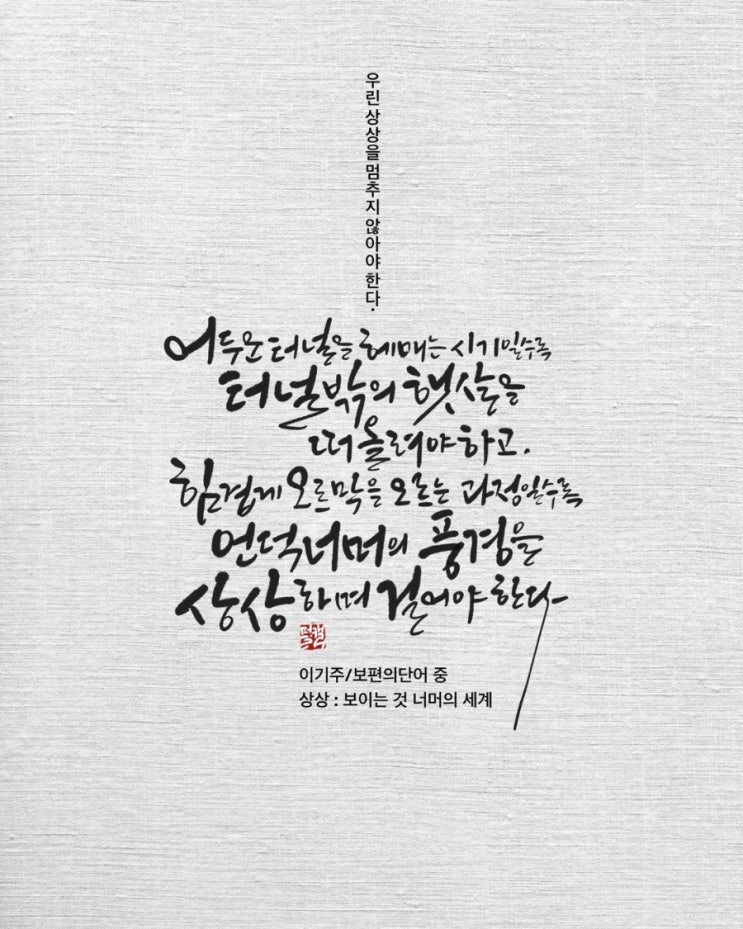 우린 상상을 멈추지 않아야 한다.
어두운 터널을 헤매는 시기일수록
터널 밖의 햇살을
떠올려야 하고.
힘겹게 오르막을 오르는 과정일수록
언덕 너머의 풍경을
상상하며 걸어야 한다
이기주/보편의단어 중
상상 : 보이는 것 너머의 세계